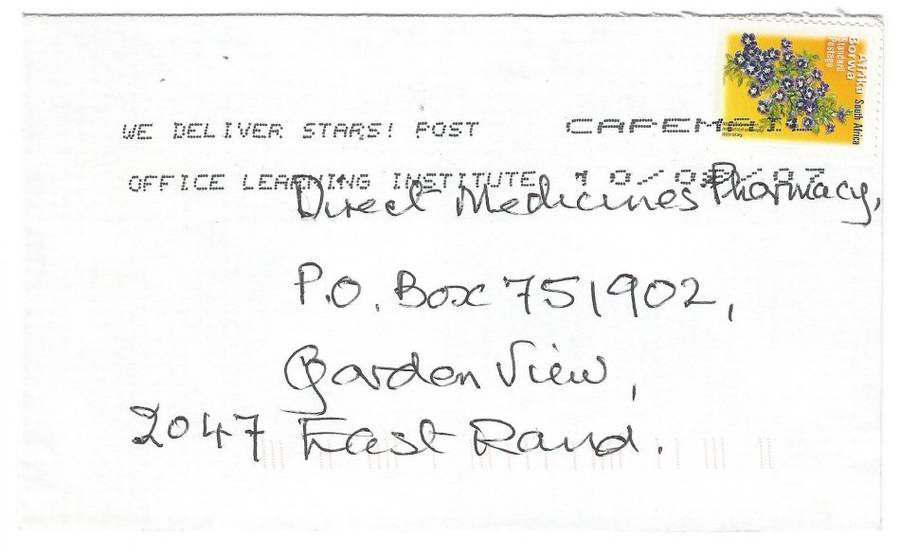 Afrika South Africa
Borwa
Standard
Postage
WE DELIVER STARS! POST CAPEMA
OFFICE LEARNING INSTITUTE
Direct Medicines Pharmacy,
P.O. Box 751902,
Garden View,
2047 East Rand.